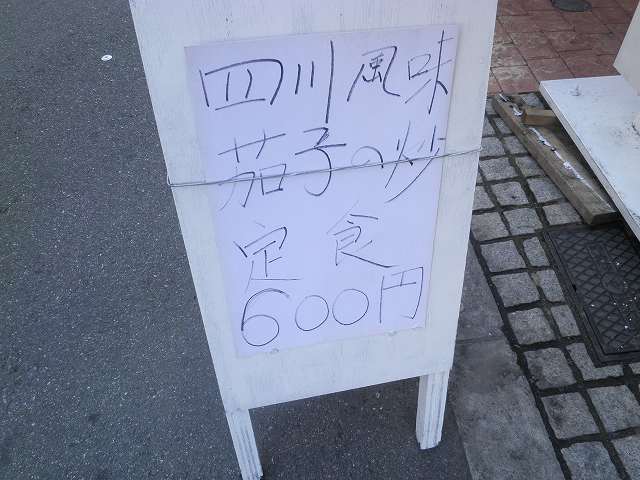 四川風味
茄子の炒
定食
600円